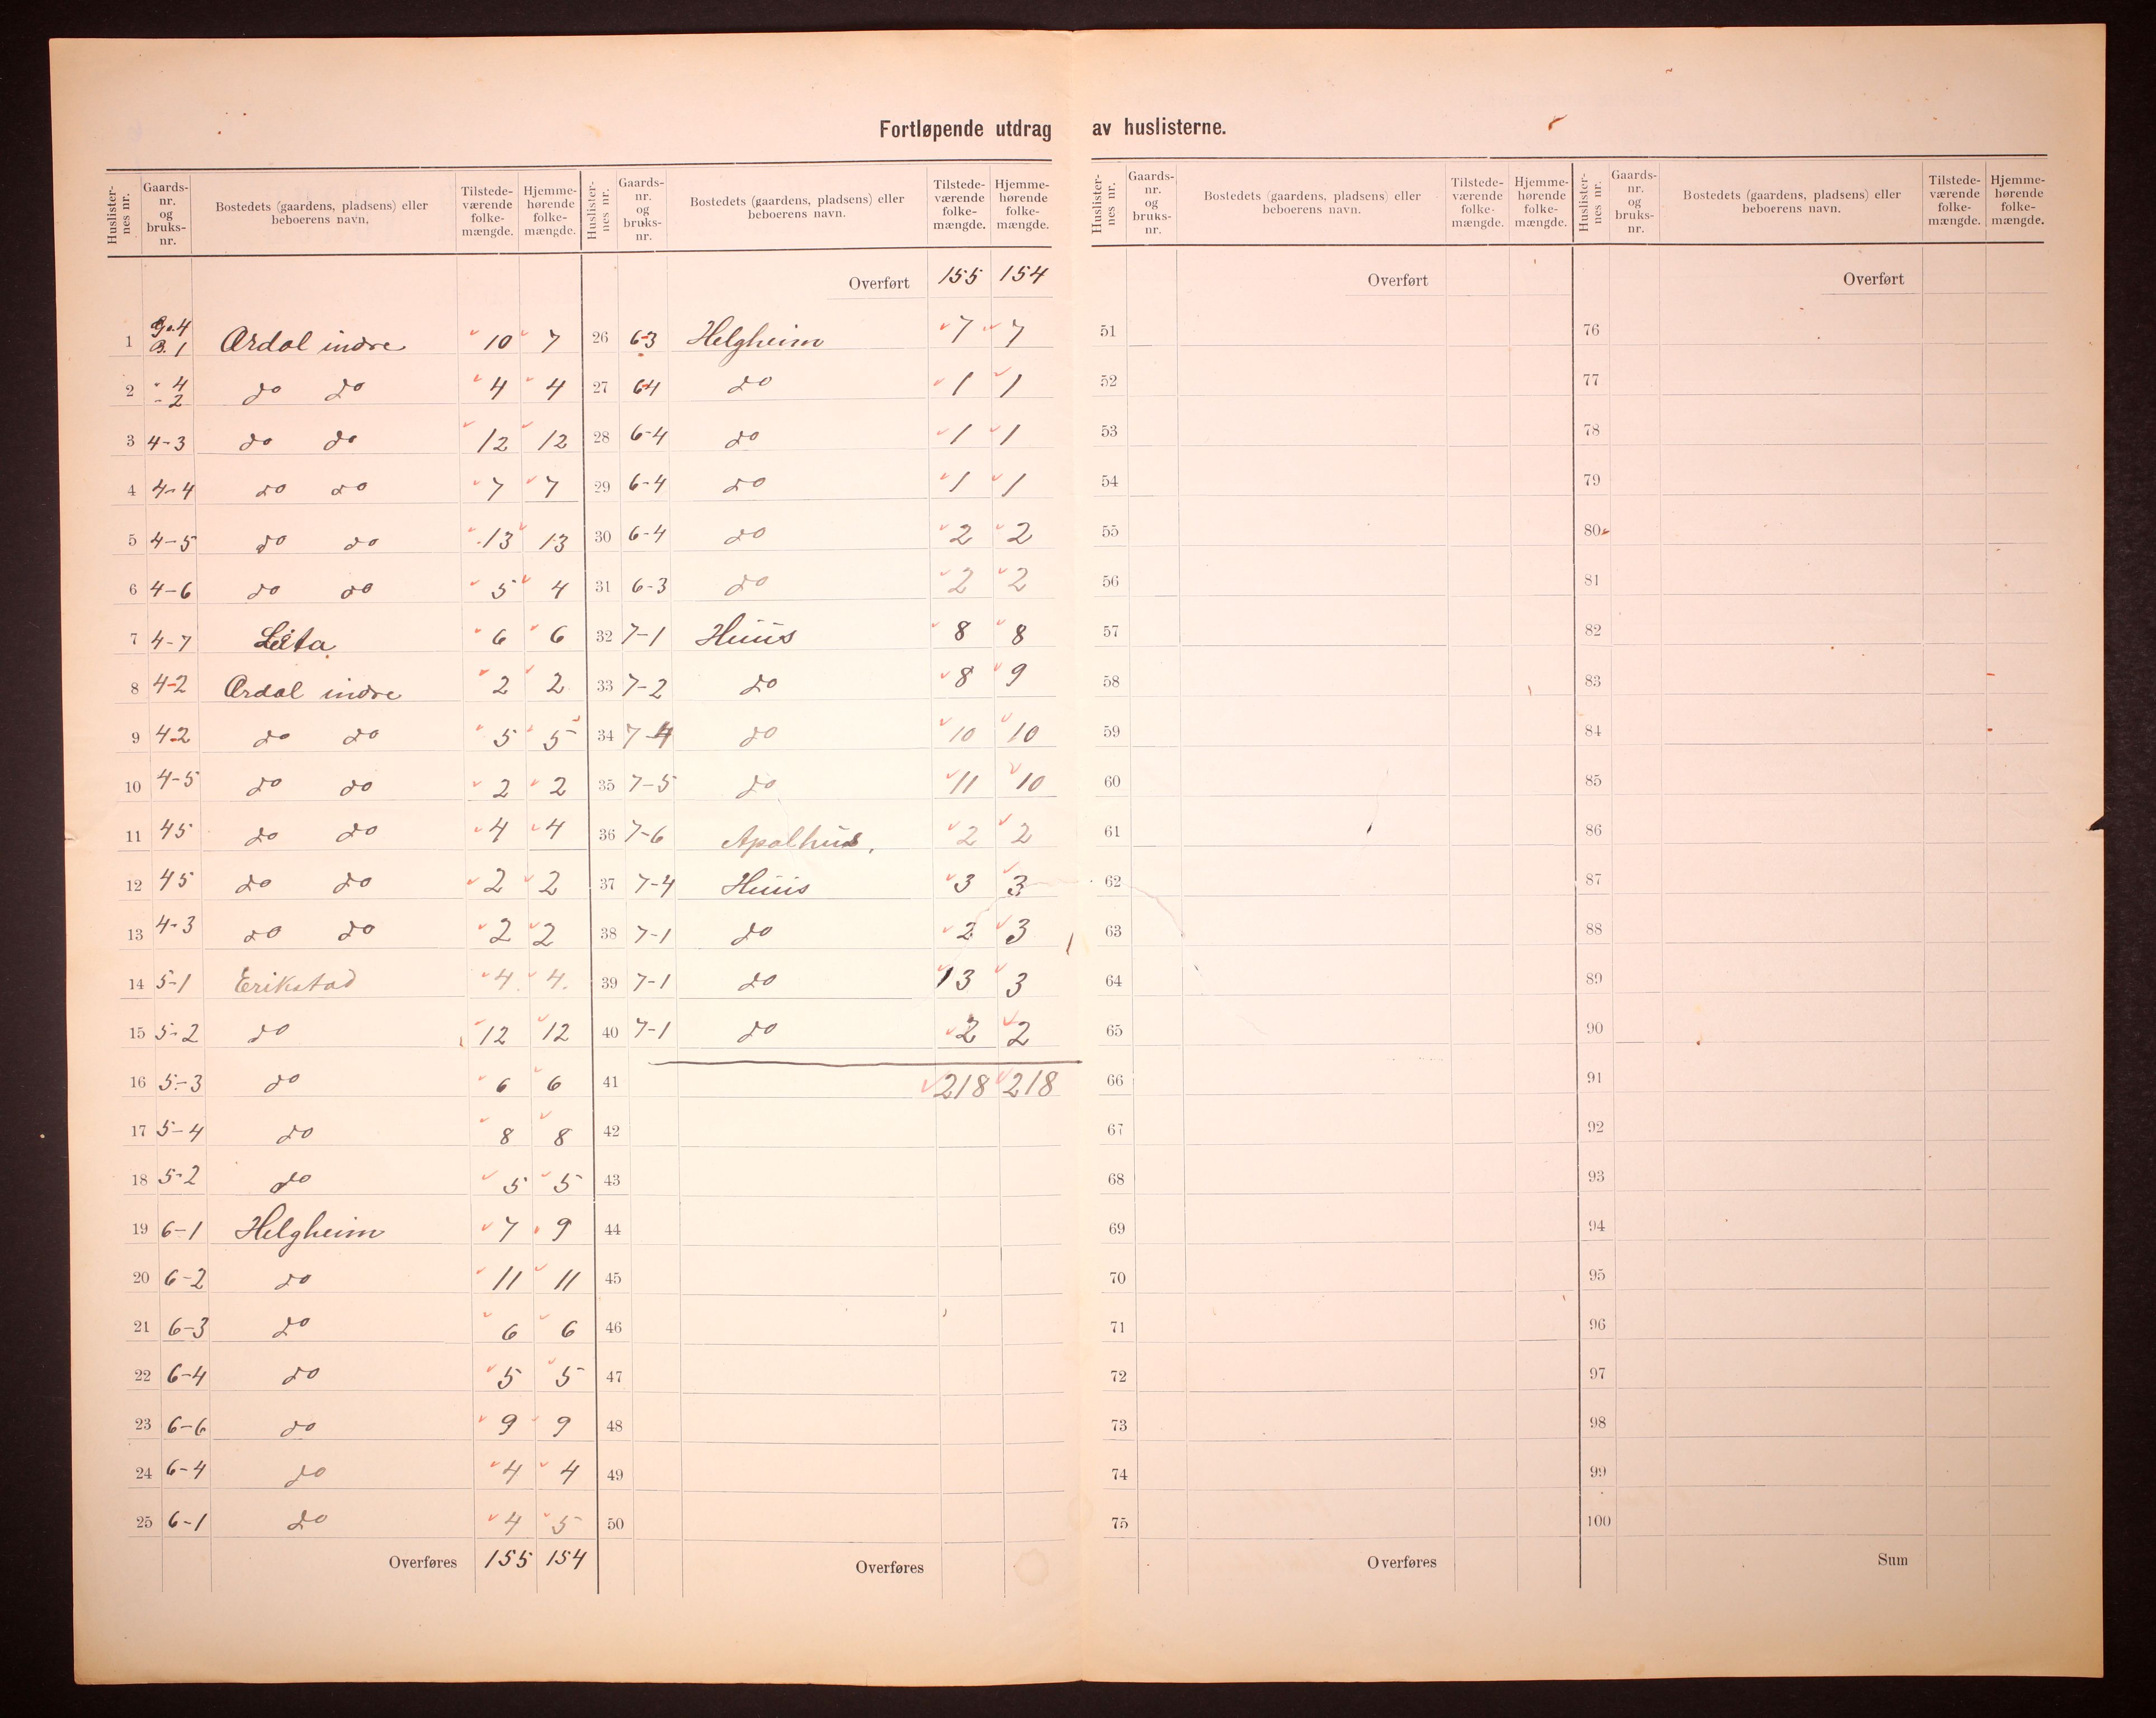 Fortløpende utdrag av huslisterne.
Huslister-nes nr. Gaards-nr. og bruks-nr. Bostedets (gaardens, pladsens) eller beboerens navn. Tilstede-værende folke-mængde. Hjemme-hørende folke-mængde.
1 G. 4 B. 1 Ørdal indre 10 7
2 " 4 - 2 do do 4 4
3 4-3 do do 12 12
4 4-4 do do 7 7
5 4-5 do do 13 13
6 4-6 do do 5 4
7 4-7 6 6
8 4-2 Ørdal indre 2 2
9 4-2 do do 5 5
10 4-5 do do 2 2
11 45 do do 4 4
12 45 do do 2 2
13 4-3 do do 2 2
14 5-1 Erikstad 4 4
15 5-2 do 12 12
16 5-3 do 6 6
17 5-4 do 8 8
18 5-2 do 5 5
19 6-1 Helgheim 7 9
20 6-2 do 11 11
21 6-3 do 6 6
22 6-4 do 5 5
23 6-6 do 9 9
24 6-4 do 4 4
25 6-1 do 4 5
Overføres 155 154
Huslister-nes nr. Gaards-nr. og bruks-nr. Bostedets (gaardens, pladsens) eller beboerens navn. Tilstede-værende folke-mængde. Hjemme-hørende folke-mængde.
Overført 155 154
26 6-3 Helgheim 7 7
27 6-4 do 1 1
28 6-4 do 1 1
29 6-4 do 1 1
30 6-4 do 2 2
31 6-3 do 2 2
32 7-1 Huus 8 8
33 7-2 do 8 9
34 7-4 do 10 10
35 7-5 do 11 10
36 7-6 Apalhus. 2 2
37 7-4 Huus 3 3
38 7-1 do 2 3
39 7-1 do 3 3
40 7-1 do 2 2
41 218 218
42
43
44
45
46
47
48
49
50
Overføres
Huslister-nes nr. Gaards-nr. og bruks-nr. Bostedets (gaardens, pladsens) eller beboerens navn. Tilstede-værende folke-mængde. Hjemme-hørende folke-mængde.
Overført
51
52
53
54
55
56
57
58
59
60
61
62
63
64
65
66
67
68
69
70
71
72
73
74
75
Overføres
Huslister-nes nr. Gaards-nr. og bruks-nr. Bostedets (gaardens, pladsens) eller beboerens navn. Tilstede-værende folke-mængde. Hjemme-hørende folke-mængde.
Overført
76
77
78
79
80
81
82
83
84
85
86
87
88
89
90
91
92
93
94
95
96
97
98
99
100
Sum